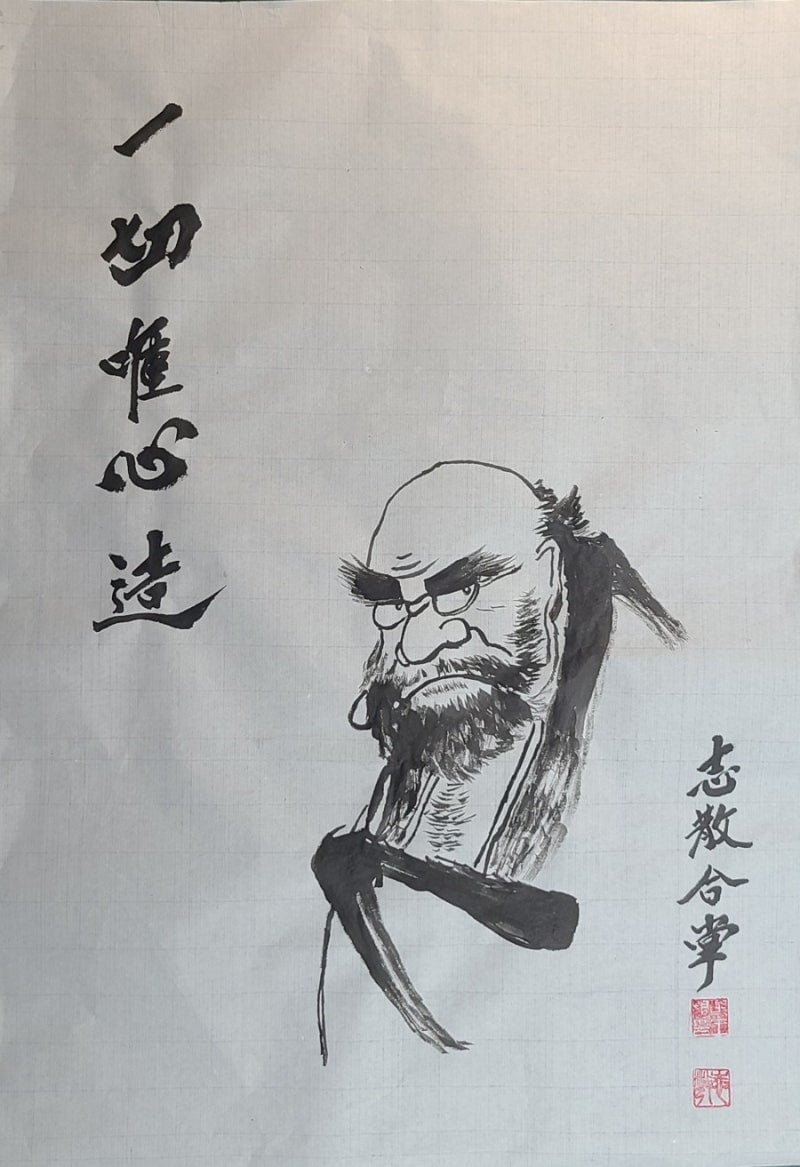 一切唯心造
志散合掌